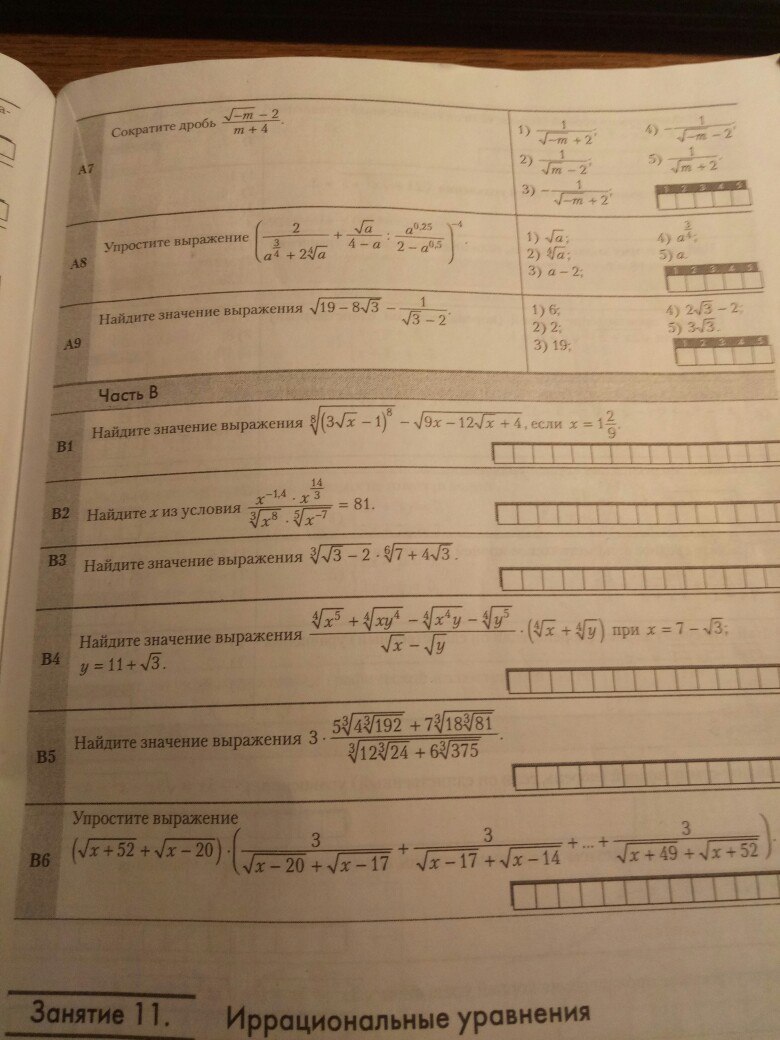 а-
А7 Сократите дробь (√(−m) − 2)/(m + 4).
1) 1/(√(−m) + 2); 4) 1/(√(−m) − 2);
2) 1/(√m − 2); 5) 1/(√m + 2).
3) −1/(√(−m) + 2);
1 2 3 4 5
А8 Упростите выражение (2/(a^(3/4) + 2∜a) + √a/(4 − a) : a^0,25/(2 − a^0,5))^−4.
1) √a; 4) a^(3/4);
2) ∜a; 5) a.
3) a − 2;
1 2 3 4 5
А9 Найдите значение выражения √(19 − 8√3) − 1/(√3 − 2).
1) 6; 4) 2√3 − 2;
2) 2; 5) 3√3.
3) 19;
1 2 3 4 5
Часть В
В1 Найдите значение выражения ⁸√((3√x − 1)^8) − √(9x − 12√x + 4), если x = 1 2/9.
В2 Найдите x из условия (x^−1,4 · x^(14/3))/(∛(x^8) · ⁵√(x^−7)) = 81.
В3 Найдите значение выражения ∛(√3 − 2) · ⁶√(7 + 4√3).
В4 Найдите значение выражения (∜(x^5) + ∜(xy^4) − ∜(x^4y) − ∜(y^5))/(√x − √y) · (∜x + ∜y) при x = 7 − √3;
y = 11 + √3.
В5 Найдите значение выражения 3 · (5∛(4∛192) + 7∛(18∛81))/(∛(12∛24) + 6∛375).
Упростите выражение
В6 (√(x + 52) + √(x − 20)) · (3/(√(x − 20) + √(x − 17)) + 3/(√(x − 17) + √(x − 14)) + ... + 3/(√(x + 49) + √(x + 52))).
Занятие 11. Иррациональные уравнения